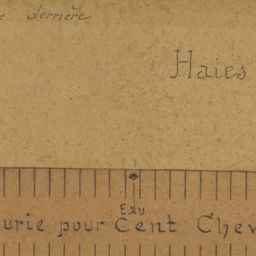 derrière
Haies
Eau
urie pour Cent Chev